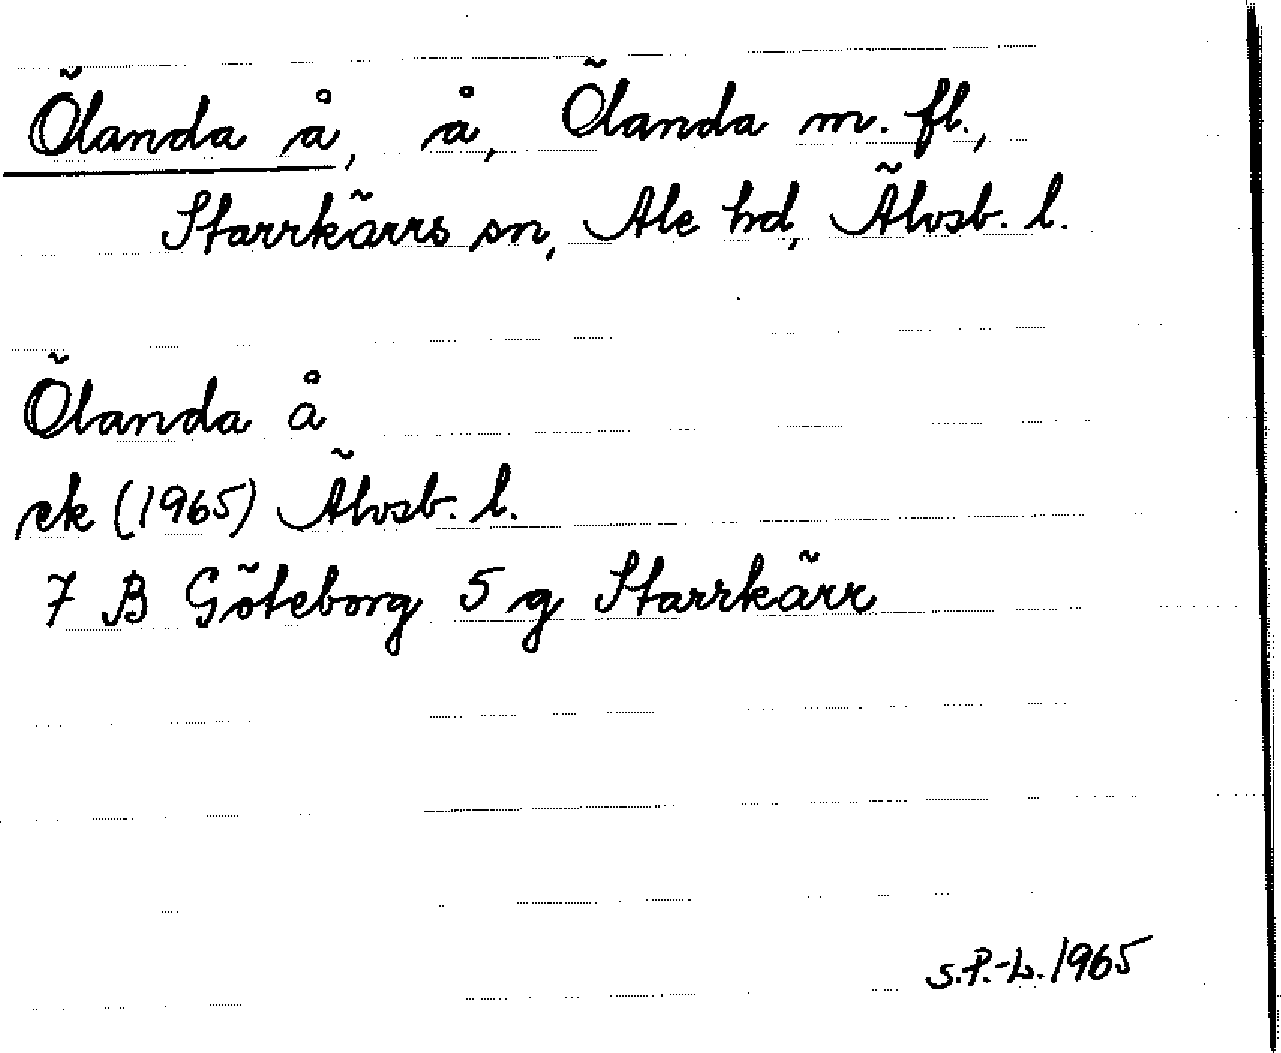 Ölanda å, å, Ölanda m. fl.,
Starrkärrs sn, Ale hd, Älvsb. l.
Ölanda å
ek (1965) Älvsb. l.
7 B Göteborg 5 g Starrkärr
S.P.-L. 1965